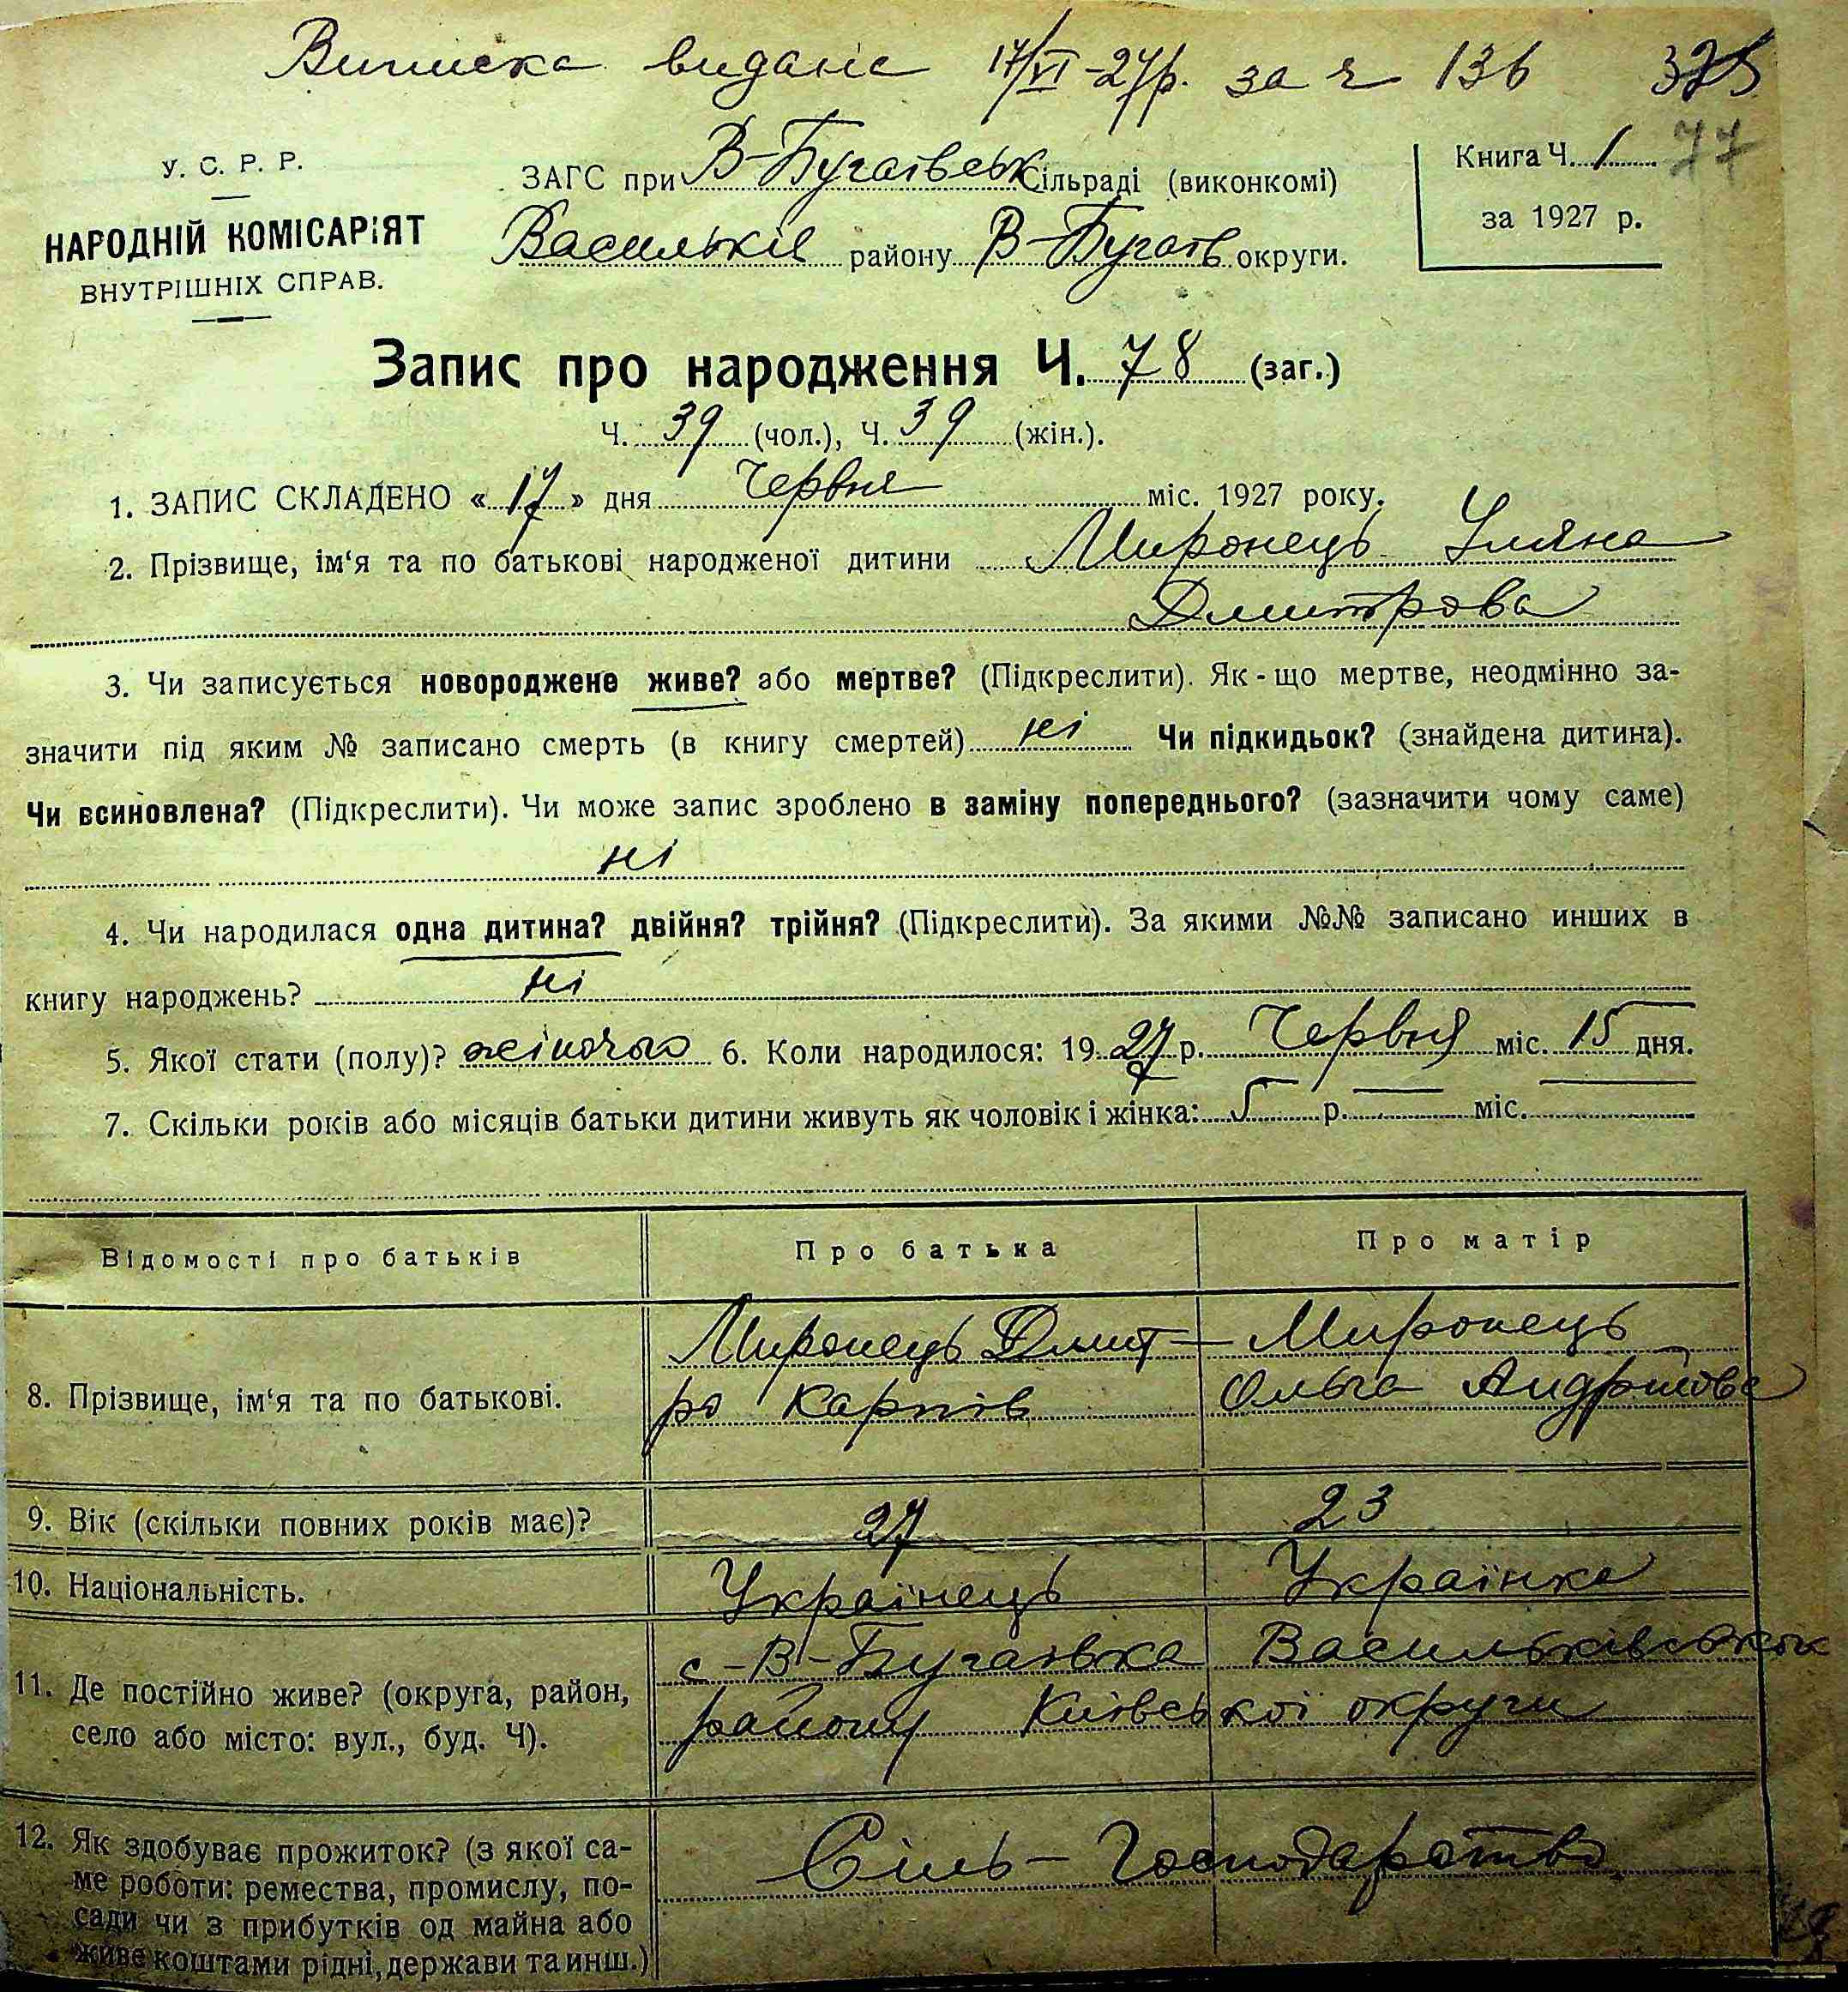 Виписка видана 17/VI-27р. за ч 136 375
77
У. С. Р. Р.
НАРОДНІЙ КОМІСАРІЯТ
ВНУТРІШНІХ СПРАВ.
ЗАГС при В-Бугаївськ Сільраді (виконкомі)
Васильків району В-Бугаїв округи.
Книга Ч. 1
за 1927 р.
Запис про народження Ч. 78 (заг.)
Ч. 39 (чол.), Ч. 39 (жін.).
1. ЗАПИС СКЛАДЕНО «17» дня Червня міс. 1927 року.
2. Прізвище, ім‘я та по батькові народженої дитини Миронець Уляна
Дмитрова
3. Чи записується новороджене живе? або мертве? (Підкреслити). Як-що мертве, неодмінно за-
значити під яким № записано смерть (в книгу смертей) ні Чи підкидьок? (знайдена дитина).
Чи всиновлена? (Підкреслити). Чи може запис зроблено в заміну попереднього? (зазначити чому саме)
ні
4. Чи народилася одна дитина? двійня? трійня? (Підкреслити). За якими №№ записано инших в
книгу народжень? ні
5. Якої стати (полу)? жіночого 6. Коли народилося: 1927 р. Червня міс. 15 дня.
7. Скільки років або місяців батьки дитини живуть як чоловік і жінка: 5 р. — міс. —
Відомості про батьків Про батька Про матір
8. Прізвище, ім‘я та по батькові.
Миронець Дмит-
ро Карпів
Миронець
Ольга Андріїова
9. Вік (скільки повних років має)? 27 23
10. Національність. Українець Українка
11. Де постійно живе? (округа, район,
село або місто: вул., буд. Ч).
с-В-Бугаївка Васильківського
району Київської округи
12. Як здобуває прожиток? (з якої са-
ме роботи: ремества, промислу, по-
сади чи з прибутків од майна або
живе коштами рідні, держави та инш.)
Сіль-Господарство